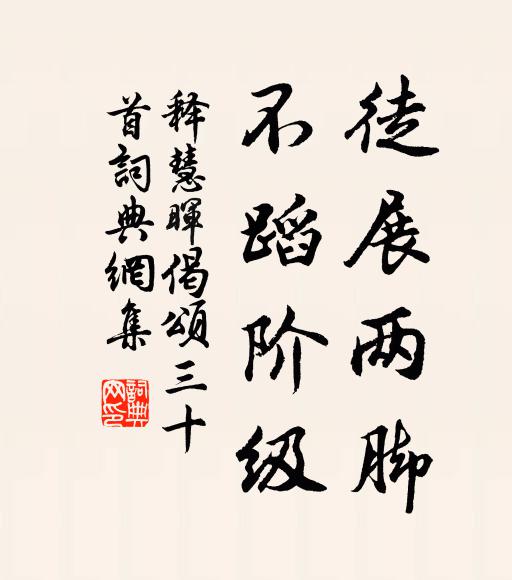 徒展两脚
不蹈阶级
释慧暉偈頌三十
首詞典網集
詞典
网印